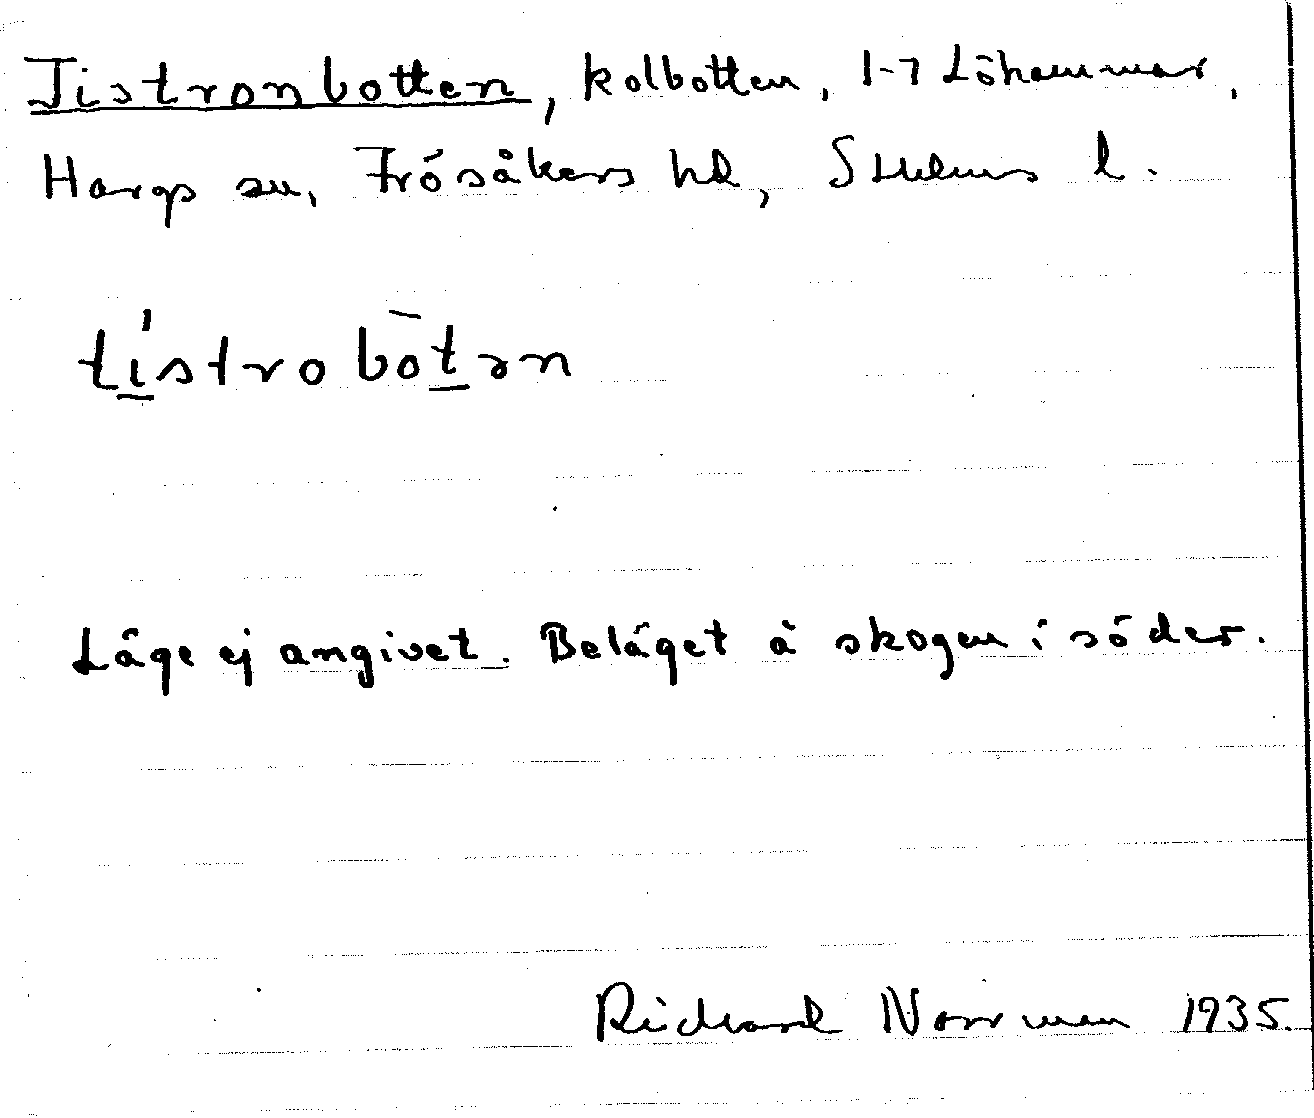 Tistronbotten, kolbotten, 1-7 Löhammar,
Hargs sn, Frösåkers hd, Sthlms l.
tistrobòtən
Läge ej angivet. Beläget å skogen i söder.
Richard Norrman 1935.